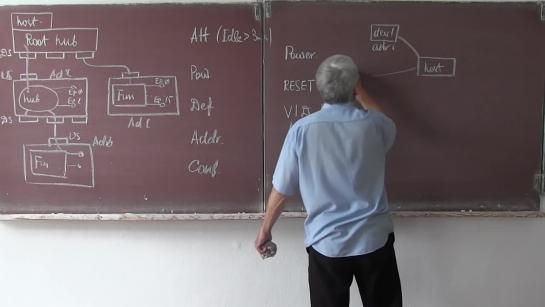 host
Root hub
DS
US
Ad X
hub
Ep0
Ep1
DS
Fun
Ep0
Ep15
Ad 1
US
Fun
Att (Idle > 3m
Pow
Def
Addr.
Conf.
Power
RESET
VID
devi
adr i
host